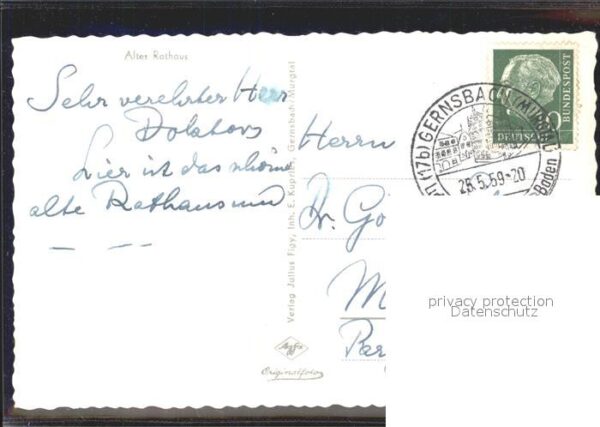 Alter Rathaus
Sehr verehrter Herr
Hier ist das schöne
alte Rathaus und
— — —
Verlag Julius Figy, Inh. E. Kuprihr, Gernsbach/Murgtal
Agfa
Originalfoto
Herrn
Dr. Gö
M
Par
DEUTSCHE
BUNDESPOST
(17b) GERNSBACH (MURGTAL)
26.5.59-20
Baden
privacy protection
Datenschutz